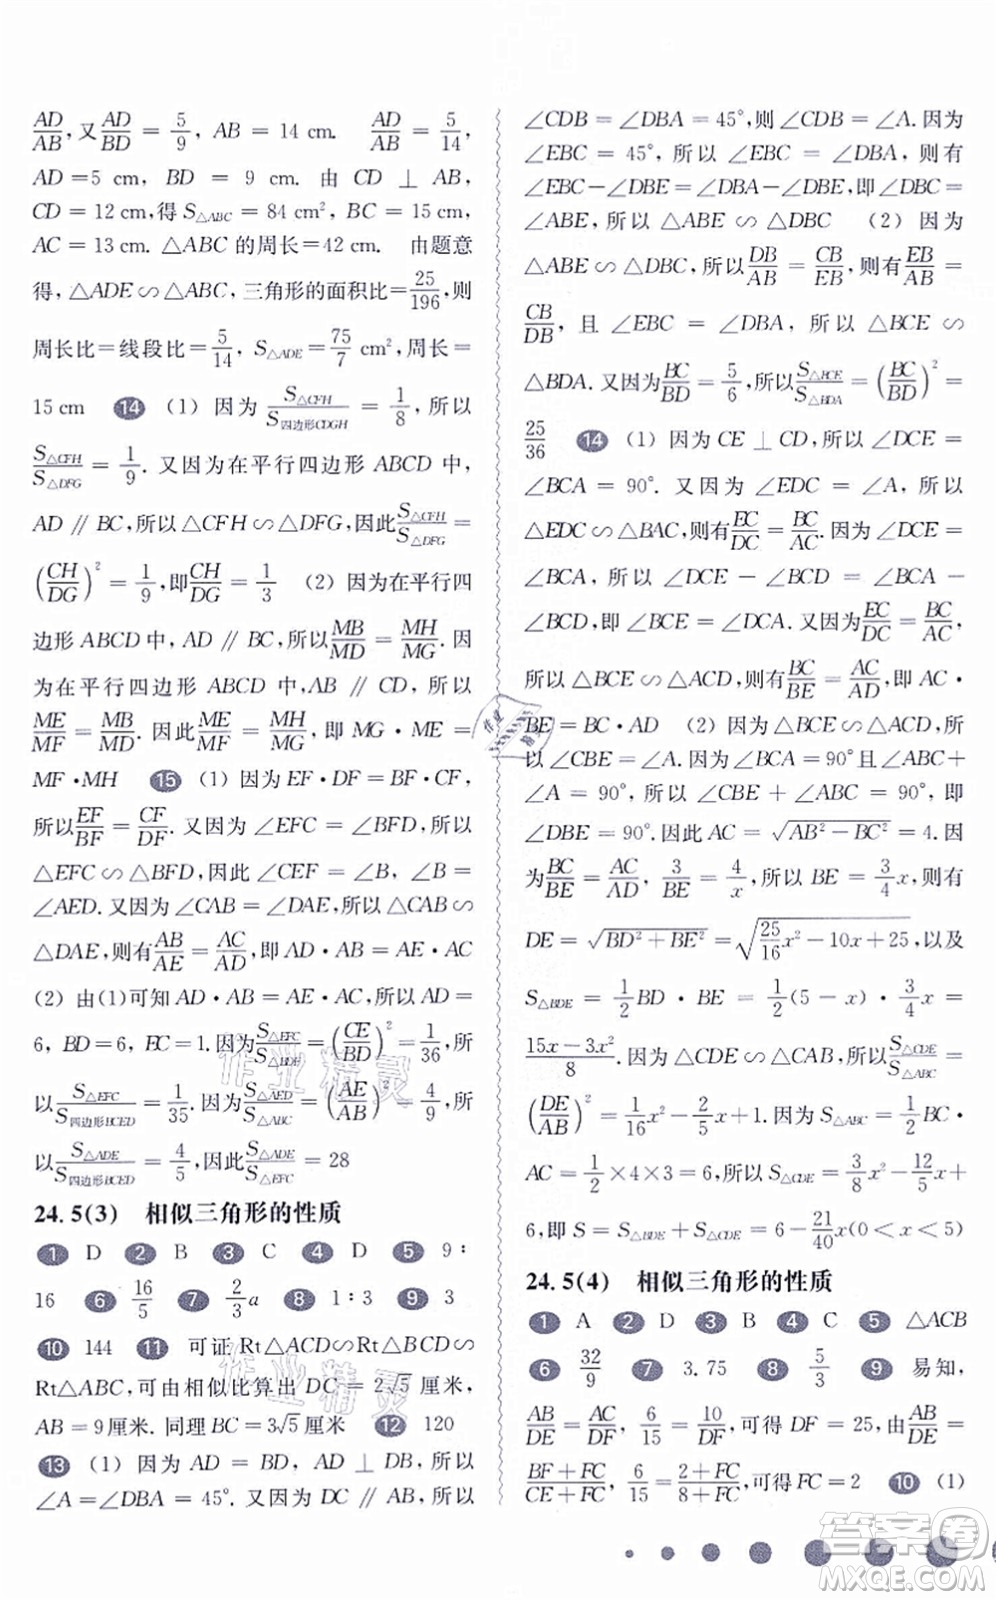 AD/AB, 又AD/BD = 5/9, AB = 14 cm. AD/AB = 5/14,
AD=5 cm, BD = 9 cm. 由 CD ⊥ AB,
CD = 12 cm, 得 S△ABC = 84 cm², BC = 15 cm,
AC = 13 cm. △ABC 的周长=42 cm. 由题意
得, △ADE ∽ △ABC, 三角形的面积比=25/196, 则
周长比=线段比=5/14, S△ADE = 75/7 cm², 周长=
15 cm 14 (1) 因为 S△CFH/S四边形CDGH = 1/8, 所以
S△CFH/S△DFG = 1/9. 又因为在平行四边形 ABCD 中,
AD // BC, 所以△CFH∽△DFG, 因此S△CFH/S△DFG =
(CH/DG)² = 1/9, 即CH/DG = 1/3 (2) 因为在平行四
边形 ABCD 中, AD // BC, 所以MB/MD = MH/MG. 因
为在平行四边形 ABCD 中, AB // CD, 所以
ME/MF = MB/MD. 因此ME/MF = MH/MG, 即 MG · ME =
MF · MH 15 (1) 因为 EF · DF = BF · CF,
所以EF/BF = CF/DF. 又因为 ∠EFC = ∠BFD, 所以
△EFC ∽ △BFD, 因此 ∠CEF = ∠B, ∠B =
∠AED. 又因为∠CAB = ∠DAE, 所以△CAB∽
△DAE, 则有AB/AE = AC/AD, 即 AD · AB = AE · AC
(2) 由(1)可知 AD · AB = AE · AC, 所以 AD =
6, BD=6, EC=1. 因为S△EFC/S△BFD = (CE/BD)² = 1/36, 所
以S△EFC/S四边形BCED = 1/35. 因为S△AED/S△ABC = (AE/AB)² = 4/9, 所
以S△ADE/S四边形BCED = 4/5, 因此S△ADE/S△EFC = 28
24. 5(3) 相似三角形的性质
1 D 2 B 3 C 4 D 5 9 :
16 6 16/5 7 2/3 a 8 1 : 3 9 3
10 144 11 可证 Rt△ACD∽Rt△BCD∽
Rt△ABC, 可由相似比算出 DC = 2√5 厘米,
AB = 9厘米. 同理 BC = 3√5 厘米 12 120
13 (1) 因为 AD = BD, AD ⊥ DB, 所以
∠A = ∠DBA = 45°. 又因为 DC // AB, 所以
∠CDB = ∠DBA = 45°, 则∠CDB = ∠A. 因为
∠EBC = 45°, 所以 ∠EBC = ∠DBA, 则有
∠EBC−∠DBE=∠DBA−∠DBE, 即∠DBC=
∠ABE, 所以 △ABE ∽ △DBC (2) 因为
△ABE ∽ △DBC, 所以DB/AB = CB/EB, 则有EB/AB =
CB/DB, 且 ∠EBC = ∠DBA, 所以 △BCE ∽
△BDA. 又因为BC/BD = 5/6, 所以S△BCE/S△BDA = (BC/BD)² =
25/36 14 (1) 因为 CE ⊥ CD, 所以 ∠DCE =
∠BCA = 90°. 又因为 ∠EDC = ∠A, 所以
△EDC ∽ △BAC, 则有EC/DC = BC/AC. 因为 ∠DCE =
∠BCA, 所以 ∠DCE − ∠BCD = ∠BCA −
∠BCD, 即 ∠BCE = ∠DCA. 又因为EC/DC = BC/AC,
所以△BCE ∽ △ACD, 所以BC/BE = AC/AD, 即 AC ·
BE = BC · AD (2) 因为 △BCE∽△ACD, 所
以 ∠CBE = ∠A. 因为∠BCA = 90° 且 ∠ABC+
∠A = 90°, 所以 ∠CBE + ∠ABC = 90°, 即
∠DBE = 90°. 因此 AC = √(AB² − BC²) = 4. 因
为BC/BE = AC/AD, 3/BE = 4/x, 所以 BE = 3/4 x, 则有
DE = √(BD² + BE²) = √(25/16 x² − 10x + 25), 以及
S△BDE = 1/2 BD · BE = 1/2 (5 − x) · 3/4 x =
(15x − 3x²)/8. 因为 △CDE ∽ △CAB, 所以S△CDE/S△ABC =
(DE/AB)² = 1/16 x² − 2/5 x + 1. 因为 S△ABC = 1/2 BC ·
AC = 1/2 × 4 × 3 = 6, 所以 S△CDE = 3/8 x² − 12/5 x +
6, 即 S = S△BDE + S△CDE = 6 − 21/40 x(0 < x < 5)
24. 5(4) 相似三角形的性质
1 A 2 D 3 B 4 C 5 △ACB
6 32/9 7 3. 75 8 5/3 9 易知,
AB/DE = AC/DF, 6/15 = 10/DF, 可得 DF = 25, 由AB/DE =
(BF + FC)/(CE + FC), 6/15 = (2 + FC)/(8 + FC), 可得 FC = 2 10 (1)
作业精灵
作业精灵
答案圈
MXQE.COM